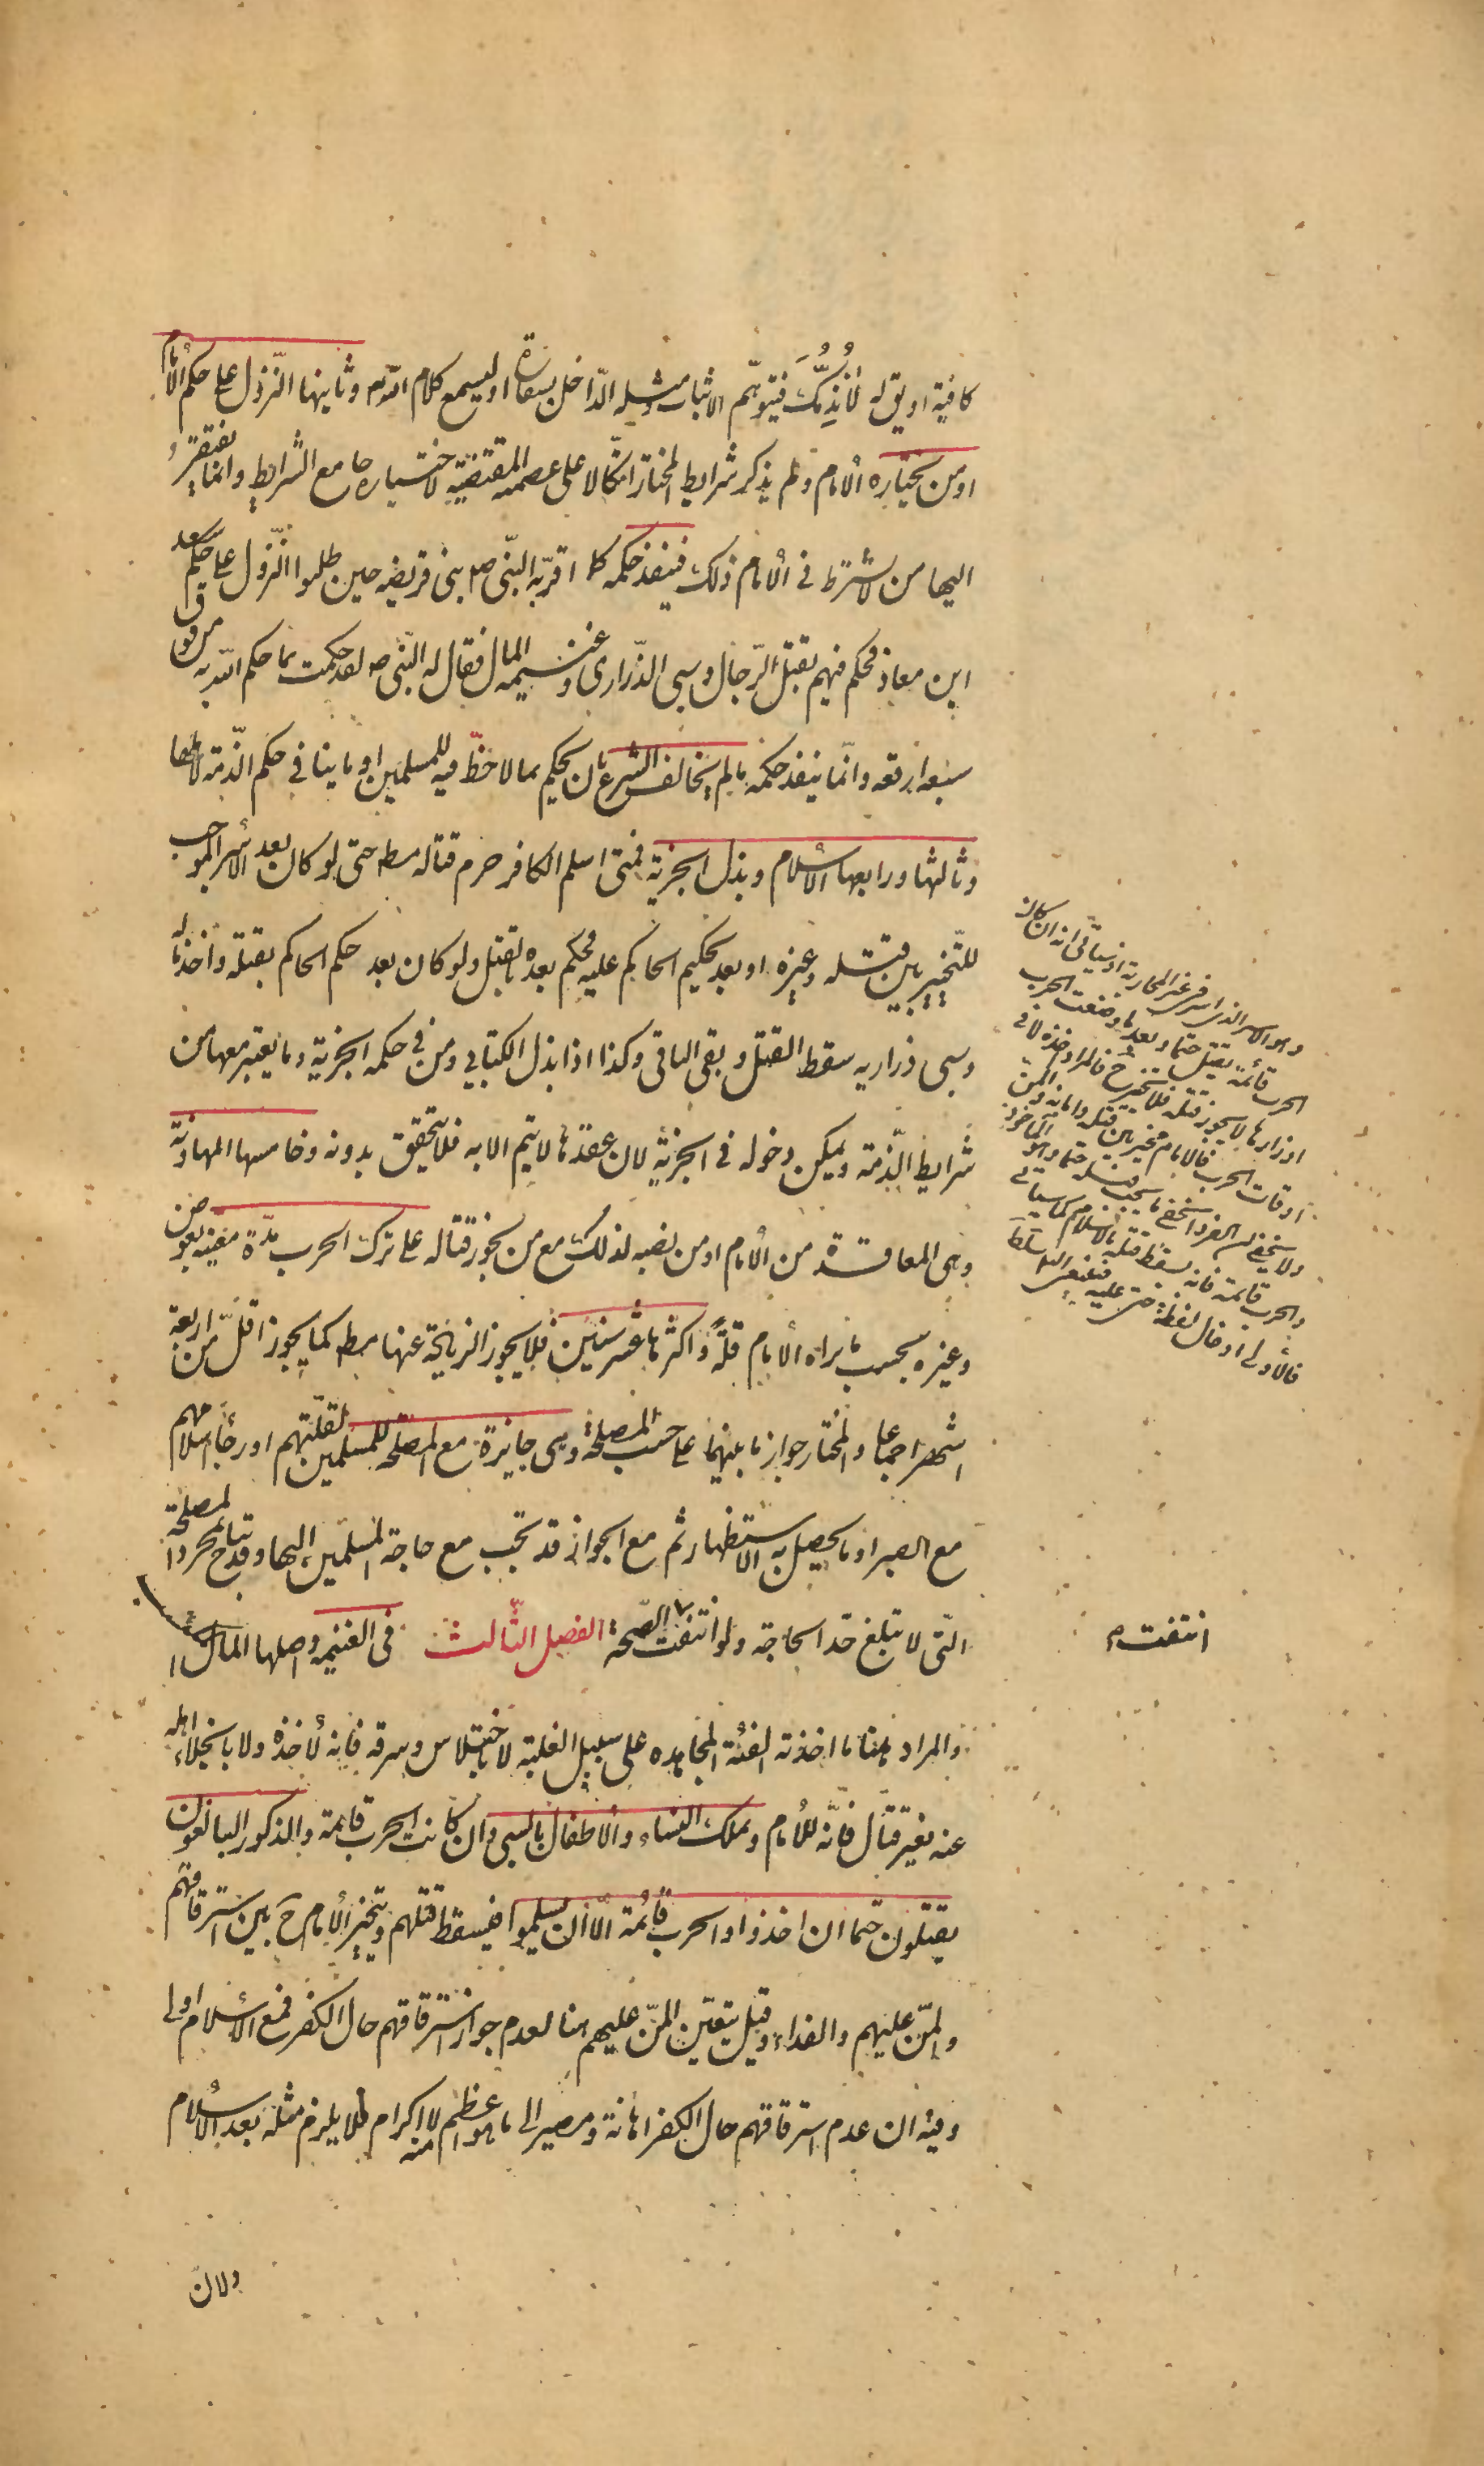 كافية او يق له لا نذمك فيتوهم الاثبات ومثله الداخل بسفارة او ليسمع كلام الله وثانيها النزول على حكم الامام
او من يختاره الامام ولم يذكر شرايط المختار اتكالا على عصمته المقتضية لاختياره جامع الشرايط وانما يفتقر
اليها من لا يشترط في الامام ذلك فينفذ حكمه كما اقر به النبي ص بنى قريضه حين طلبوا النزول على حكم سعد
ابن معاذ فحكم فيهم بقتل الرجال وسبى الذرارى وغنيمة المال فقال له النبي ص لقد حكمت بما حكم الله به من فوق
سبعة ارقعه وانما ينفذ حكمه ما لم يخالف الشرع بان يحكم بما لا حظ فيه للمسلمين او ما ينافى حكم الذمة لاهلها
وثالثها ورابعها الاسلام وبذل الجزية فمتى اسلم الكافر حرم قتاله مط حتى لو كان بعد الاسر الموجب
للتخيير بين قتله وغيره او بعد تحكيم الحاكم عليه فحكم بعده بالقتل ولو كان بعد حكم الحاكم بقتله واخذ ماله
وسبى ذراريه سقط القتل وبقى الباقى وكذا اذا بذل الكتابي ومن في حكمه الجزية وما يعتبر معها من
شرايط الذمة ويمكن دخوله فى الجزية لان عقدها لا يتم الا به فلا يتحقق بدونه وخامسها المهادنة
وهى المعاقدة من الامام او من نصبه لذلك مع من يجوز قتاله على ترك الحرب مدة معينة بعوض
وغيره بحسب ما يراه الامام قلة واكثرها عشر سنين فلا يجوز الزيادة عنها مط كما يجوز اقل من اربعة
اشهر اجماعا والمختار جواز ما بينهما على حسب المصلحة وهى جايزة مع المصلحة للمسلمين لقلتهم او رجاء اسلامهم
مع الصبر او ما يحصل به الاستظهار ثم مع الجواز قد تجب مع حاجة المسلمين اليها وقد تباح لمجرد المصلحة
التى لا تبلغ حد الحاجة ولو انتفت انتفت الصحة الفصل الثالث فى الغنيمه واصلها المال المكتسب
والمراد هنا ما اخذته الفئة المجاهده على سبيل الغلبة لا باختلاس وسرقه فانه لآخذه ولا بانجلاء اهله
عنه بغير قتال فانه للامام وتملك النساء والاطفال بالسبى وان كانت الحرب قائمة والذكور البالغون
يقتلون حتما ان اخذوا والحرب قائمة الا ان يسلموا فيسقط قتلهم ويتخير الامام ح بين استرقاقهم
والمن عليهم والفداء وقيل يتعين المن عليهم هنا لعدم جواز استرقاقهم حال الكفر فمع الاسلام اولى
وفيه ان عدم استرقاقهم حال الكفر اهانة ومصير الى ما هو اعظم منه لا اكرام فلا يلزم مثله بعد الاسلام
ولان
وهو الاسر الذى اسر في غير المحاربة اذ سياتى انه ان كان
الحرب قائمة يقتل حتما وبعد ما وضعت الحرب
اوزارها لا يجوز قتله فلا تخير ح فالمراد اخذه لا في
اوقات الحرب فالامام مخير بين قتله وامانه والمن
ولا يخفى ان الفرد الخفى ما يجب قتله حتما وهو الماخوذ
والحرب قائمة فانه يسقط قتله بالاسلام كما سياتى
فالاولى ادخال لفظة حتى عليه
انتفت م